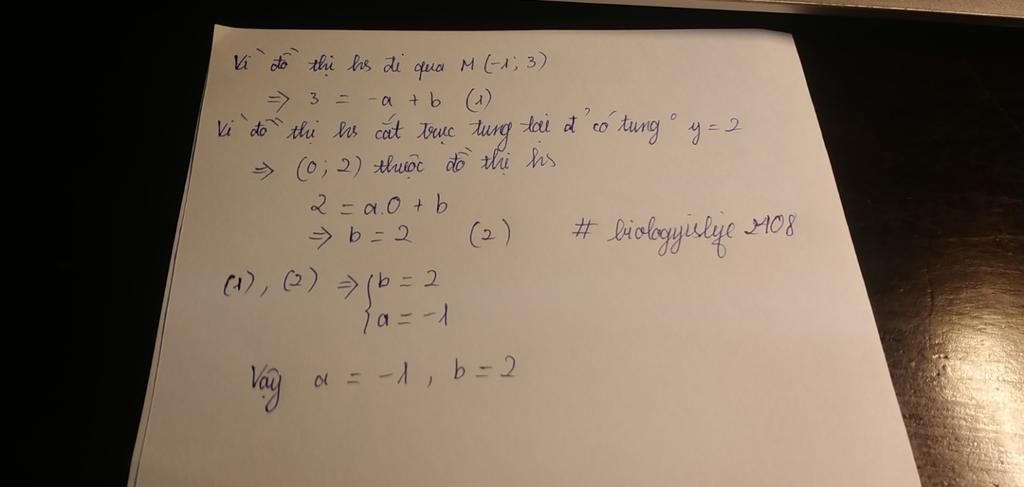 Vì đồ thị hs đi qua M (-1; 3)
=> 3 = -a + b (1)
Vì đồ thị hs cắt trục tung tại đ' có tung° y = 2
=> (0; 2) thuộc đồ thị hs
2 = a.0 + b
=> b = 2 (2) # biologyislife 2408
(1), (2) => { b = 2
a = -1
Vậy a = -1, b = 2